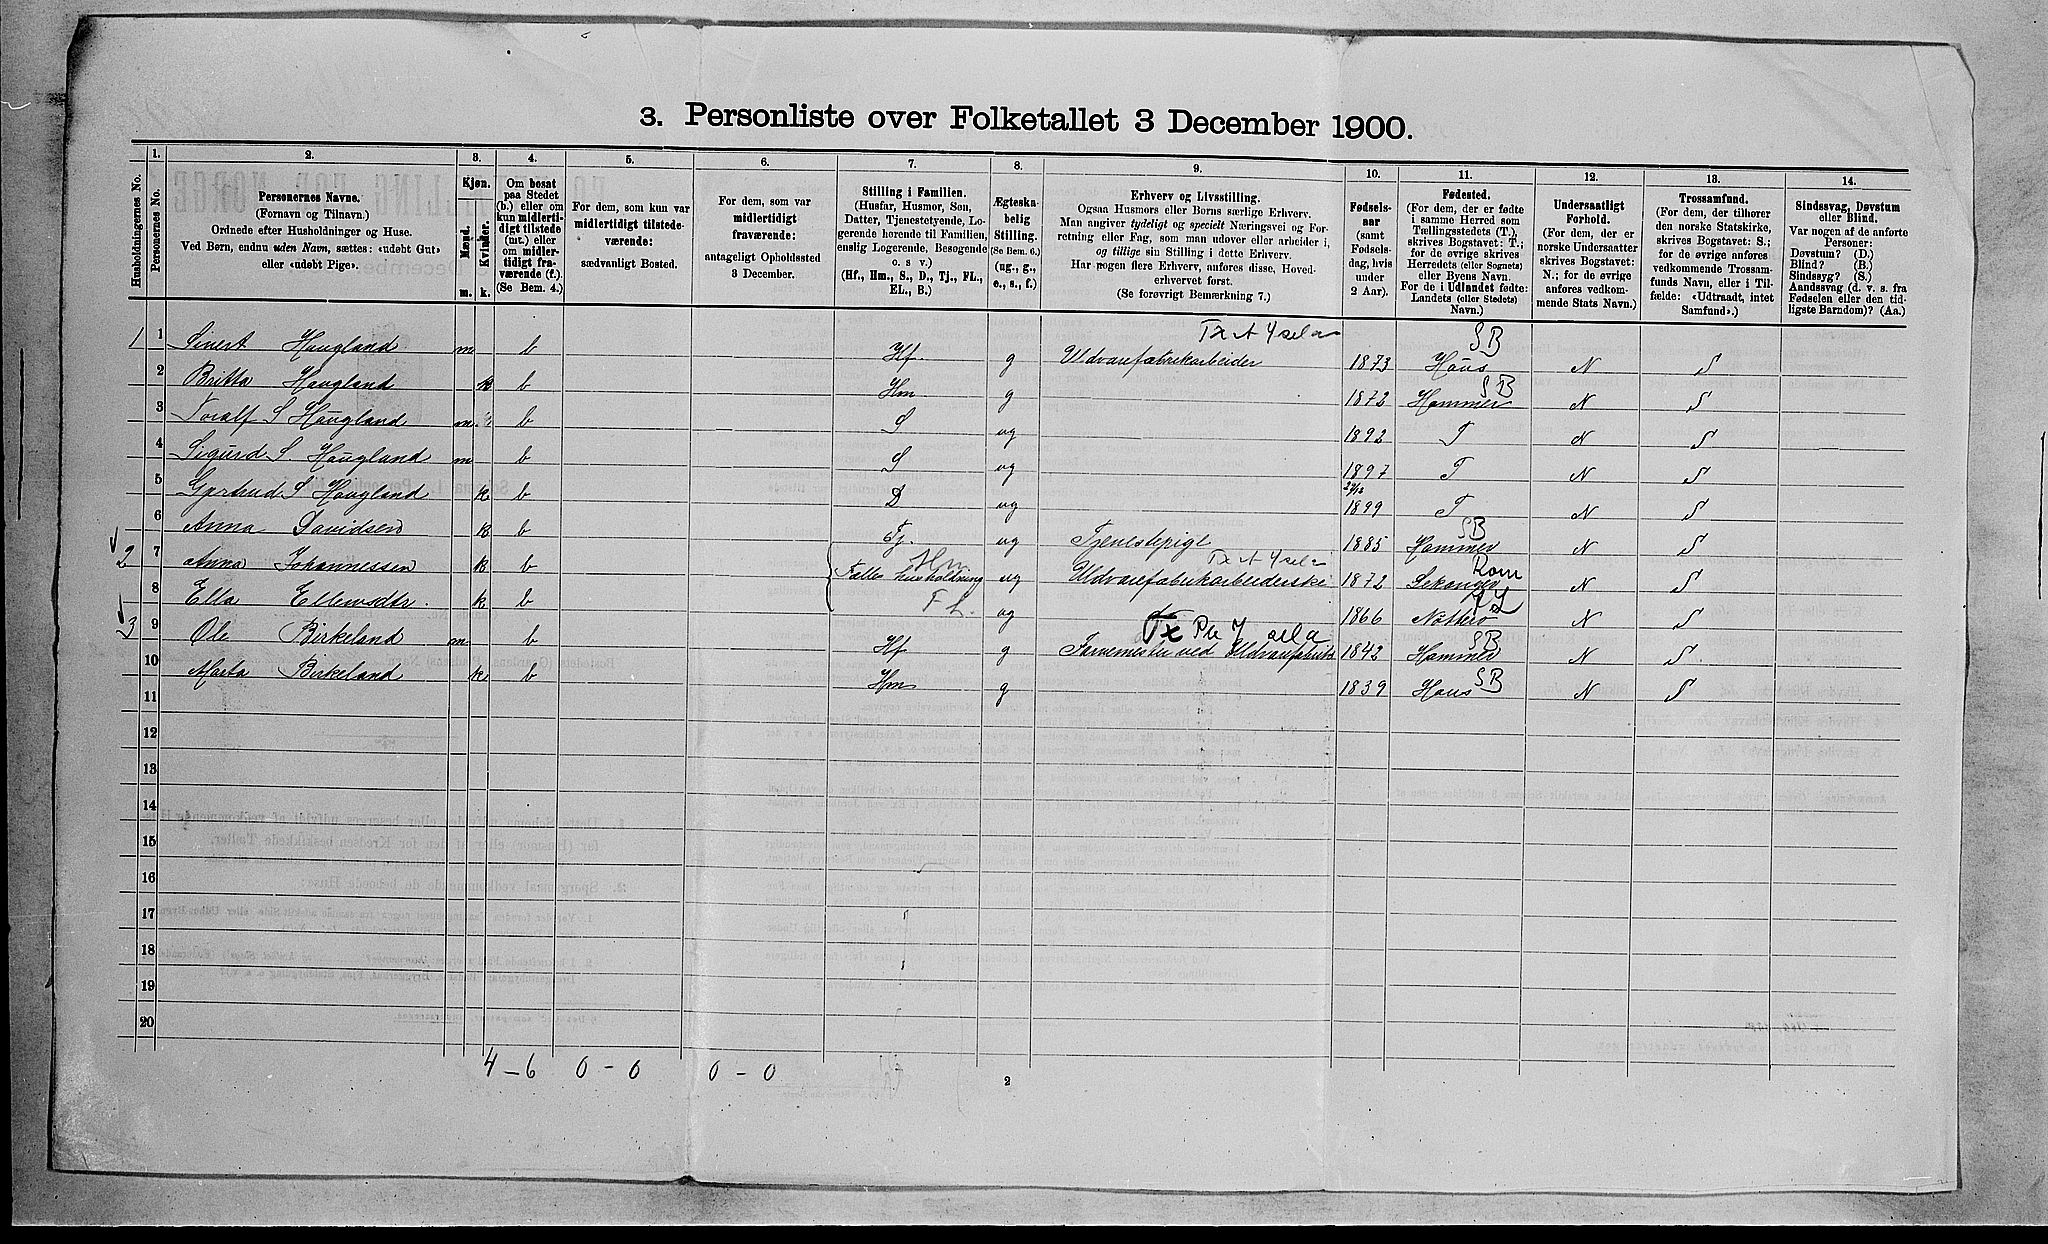 3. Personliste over Folketallet 3 December 1900.
Husholdningernes No.
1. Personernes No.
2. Personernes Navne. (Fornavn og Tilnavn.) Ordnede efter Husholdninger og Huse. Ved Børn, endnu uden Navn, sættes: «udøbt Gut» eller «udøbt Pige».
3. Kjøn. Mænd. m. Kvinder. k.
4. Om bosat paa Stedet (b.) eller om kun midlertidigt tilstede (mt.) eller om midlertidigt fraværende (f.) (Se Bem. 4.)
5. For dem, som kun var midlertidigt tilstedeværende: sædvanligt Bosted.
6. For dem, som var midlertidigt fraværende: antageligt Opholdssted 3 December.
7. Stilling i Familien. (Husfar, Husmor, Søn, Datter, Tjenestetyende, Logerende hørende til Familien, enslig Logerende, Besøgende o. s v.) (Hf., Hm., S., D., Tj., FL., EL., B.)
8. Ægteskabelig Stilling. (Se Bem. 6.) (ug., g., e., s., f.)
9. Erhverv og Livsstilling. Ogsaa Husmors eller Børns særlige Erhverv. Man angiver tydeligt og specielt Næringsvei og Forretning eller Fag, som man udøver eller arbeider i, og tillige sin Stilling i dette Erhverv. Har nogen flere Erhverv, anføres disse, Hovederhvervet først. (Se forøvrigt Bemærkning 7.)
10. Fødselsaar (samt Fødselsdag, hvis under 2 Aar).
11. Fødested. (For dem, der er fødte i samme Herred som Tællingsstedets (T.), skrives Bogstavet: T.; for de øvrige skrives Herredets (eller Sognets) eller Byens Navn. For de i Udlandet fødte: Landets (eller Stedets) Navn.)
12. Undersaatligt Forhold. (For dem, der er norske Undersaatter skrives Bogstavet: N.; for de øvrige anføres vedkommende Stats Navn.)
13. Trossamfund. (For dem, der tilhører den norske Statskirke, skrives Bogstavet: S.; for de øvrige anføres vedkommende Trossamfunds Navn, eller i Tilfælde: «Udtraadt, intet Samfund».)
14. Sindssvag, Døvstum eller Blind. Var nogen af de anførte Personer: Døvstum? (D.) Blind? (B.) Sindssyg? (S.) Aandssvag (d. v. s. fra Fødselen eller den tidligste Barndom)? (Aa.)
1 1 Sivert Haugland m b Hf. g Uldvarefabrikarbeider 1873 Haus SB N S
2 Britta Haugland k b Hm g 1872 Hammer SB N S
3 Toralf S Haugland m b S ug 1892 T N S
4 Sigurd S. Haugland m b S ug 1897 T N S
5 Gjertrud S Haugland k b D ug 29/12 1899 T N S
6 Anna Davidsen k b Tj. ug Tjenestepige 1885 Hammer SB N S
2 7 Anna Johannessen k b Fælles husholdning Hm ug Uldvarefabrikarbeiderske 1872 N S
8 Ella k b FL. ug 1866 N S
3 9 Ole Birkeland m b Hf g Farvemester ved Uldvarefabrik 1842 Hammer SB N S
10 Marta Birkeland k b Hm g 1839 Haus SB N S
11
12
13
14
15
16
17
18
19
20
4 – 6 0 – 0 0 – 0
2